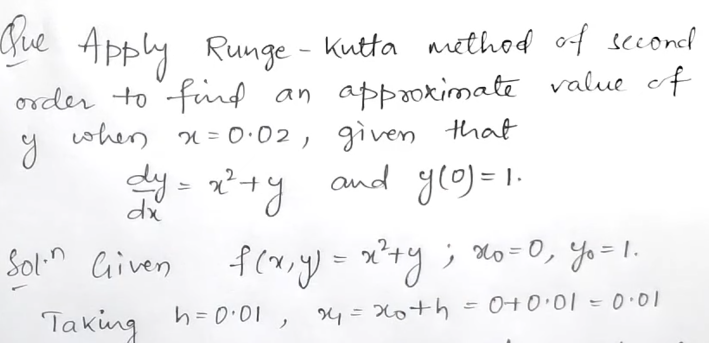 Que Apply Runge-Kutta method of second
order to find an approximate value of
y when x=0.02, given that
dy/dx = x²+y and y(0)=1.
Sol.ⁿ Given f(x,y) = x²+y ; x₀=0, y₀=1.
Taking h=0.01, x₁=x₀+h = 0+0.01 = 0.01